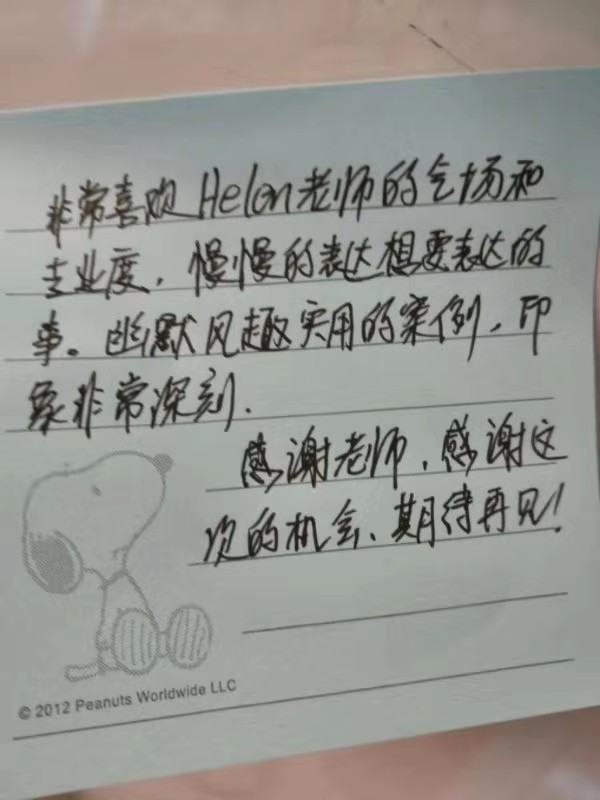 非常喜欢Helen老师的气场和
专业度，慢慢的表达想要表达的
事。幽默风趣实用的案例，印
象非常深刻.
感谢老师，感谢这
次的机会、期待再见！
© 2012 Peanuts Worldwide LLC